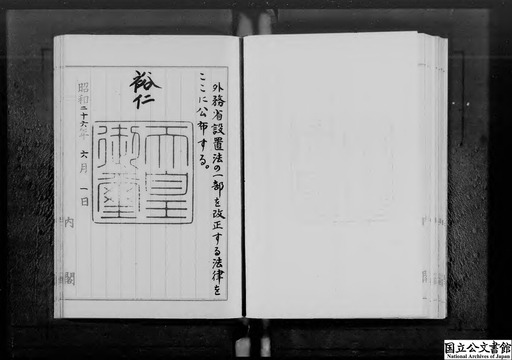 外務省設置法の一部を改正する法律を
ここに公布する。
裕仁
天皇
御璽
昭和二十六年 六月 一日
内閣
国立公文書館
National Archives of Japan